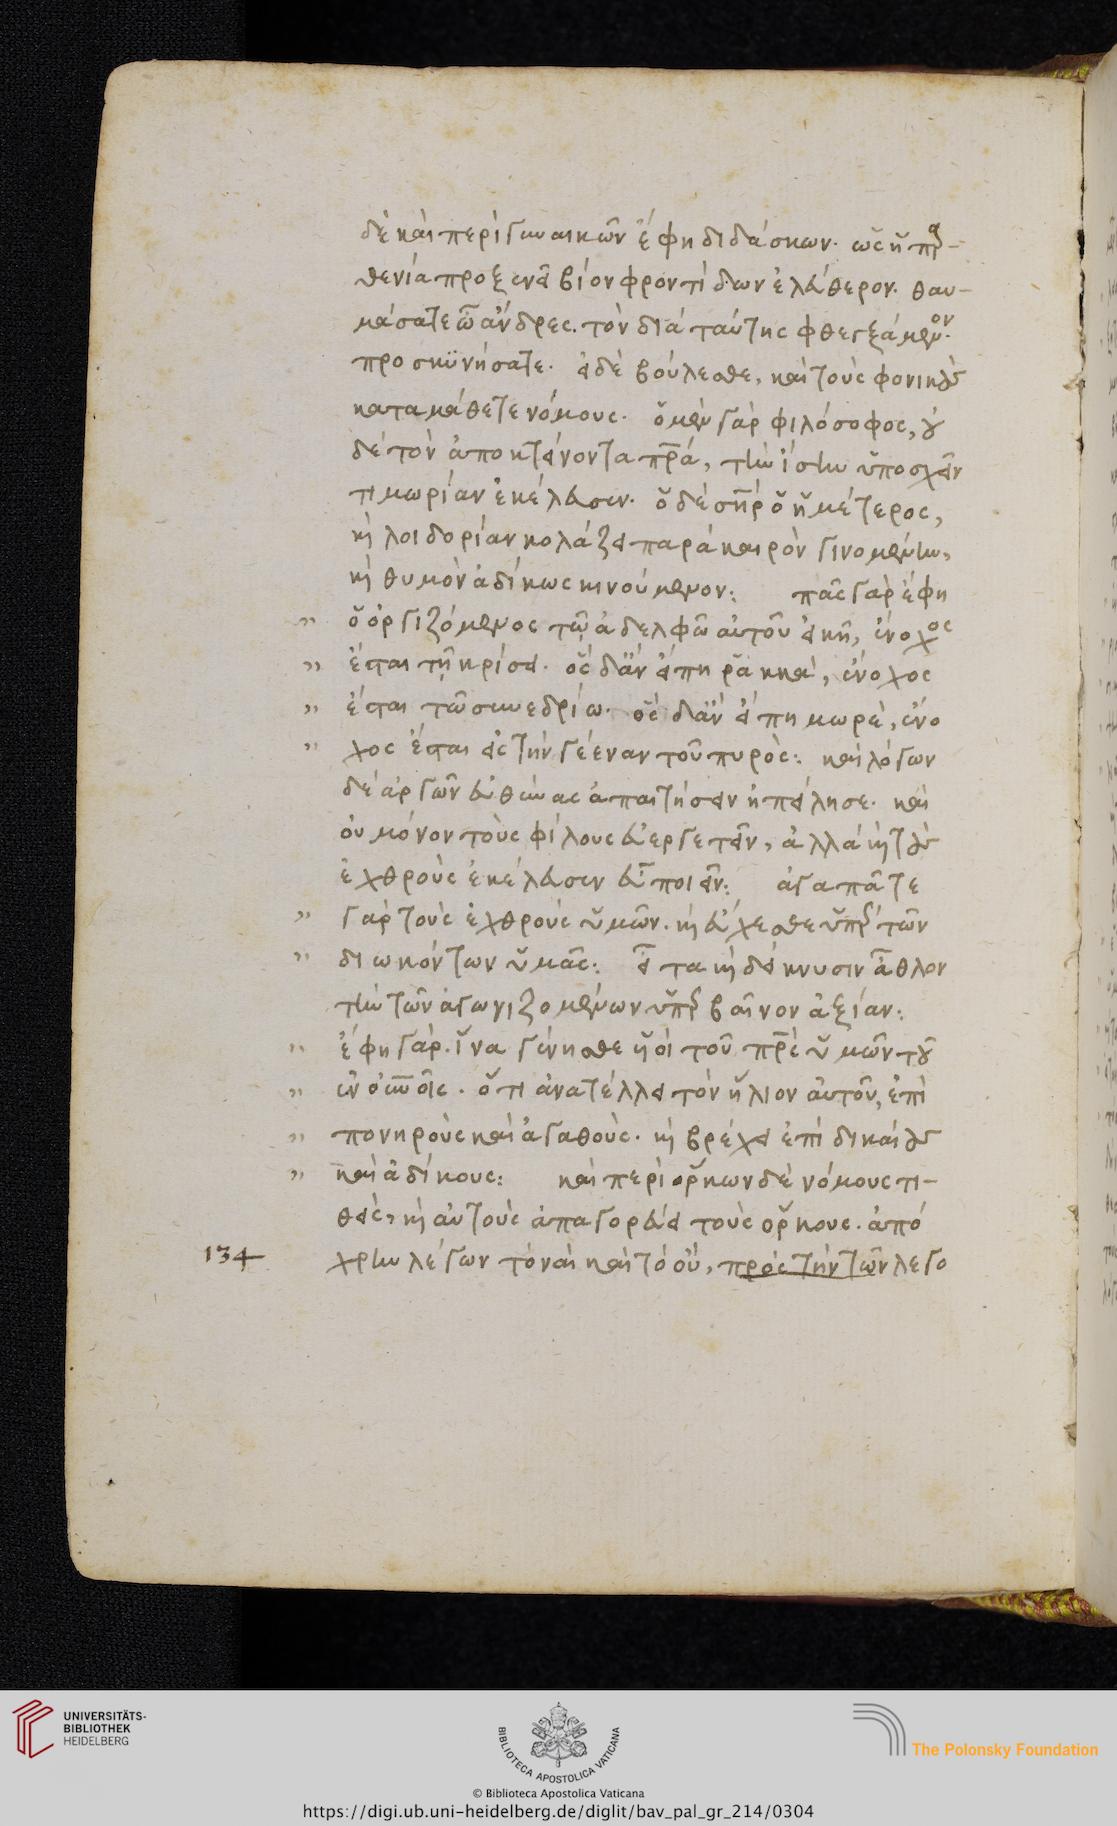 δὲ καὶ περὶ γυναικῶν ἔφη διδάσκων. ὡς ἡ παρ-
θενία προξενεῖ βίον φροντίδων ἐλεύθερον. θαυ-
μάσατε ὦ ἄνδρες. τὸν διὰ ταύτης φθεγξάμενον.
προσκυνήσατε. εἰ δὲ βούλεσθε, καὶ τοὺς φονικοὺς
καταμάθετε νόμους. ὁ μὲν γὰρ φιλόσοφος, οὐ
δὲ τὸν ἀποκτείνοντα πρα, τὴν ἴσην ὑποσχεῖν
τιμωρίαν ἐκέλευσεν. ὁ δὲ σηρ ὁ ἡμέτερος,
καὶ λοιδορίαν κολάζει παρὰ καιρὸν γινομένην,
καὶ θυμὸν ἀδίκως κινούμενον: πᾶς γὰρ ἔφη
" ὁ ὀργιζόμενος τῷ ἀδελφῷ αὐτοῦ εἰκῆ, ἔνοχος
" ἔσται τῇ κρίσει. ὃς δ' ἂν εἴπῃ ῥακκά, ἔνοχος
" ἔσται τῷ συνεδρίω. ὃς δ' ἂν εἴπῃ μωρὲ, ἔνο
" χος ἔσται εἰς τὴν γέεναν τοῦ πυρὸς: καὶ λόγων
δὲ ἀργῶν εὐθύνας ἀπαιτήσειν ἠπείλησε. καὶ
οὐ μόνον τοὺς φίλους εὐεργετεῖν, ἀλλὰ καὶ τοὺς
ἐχθροὺς ἐκέλευσεν εὖ ποιεῖν: ἀγαπᾶτε
" γὰρ τοὺς ἐχθροὺς ὑμῶν. καὶ εὔχεσθε ὑπὲρ τῶν
" διωκόντων ὑμᾶς: εἶτα καὶ δείκνυσιν ἆθλον
τὴν τῶν ἀγωνιζομένων ὑπερβαῖνον ἀξίαν:
" ἔφη γάρ. ἵνα γένησθε υἱοὶ τοῦ πρς ὑμῶν τοῦ
" ἐν οὐνοῖς. ὅτι ἀνατέλλει τὸν ἥλιον αὐτοῦ, ἐπὶ
" πονηροὺς καὶ ἀγαθοὺς. καὶ βρέχει ἐπὶ δικαίους
" καὶ ἀδίκους: καὶ περὶ ὅρκων δὲ νόμους τι-
θεὶς, καὶ αὐτοὺς ἀπαγορεύει τοὺς ὅρκους. ἀπό
134 χρην λέγων τὸ ναὶ καὶ τὸ οὔ, πρὸς τὴν τῶν λεγο
UNIVERSITÄTS-
BIBLIOTHEK
HEIDELBERG
BIBLIOTECA APOSTOLICA VATICANA
The Polonsky Foundation
© Biblioteca Apostolica Vaticana
https://digi.ub.uni-heidelberg.de/diglit/bav_pal_gr_214/0304